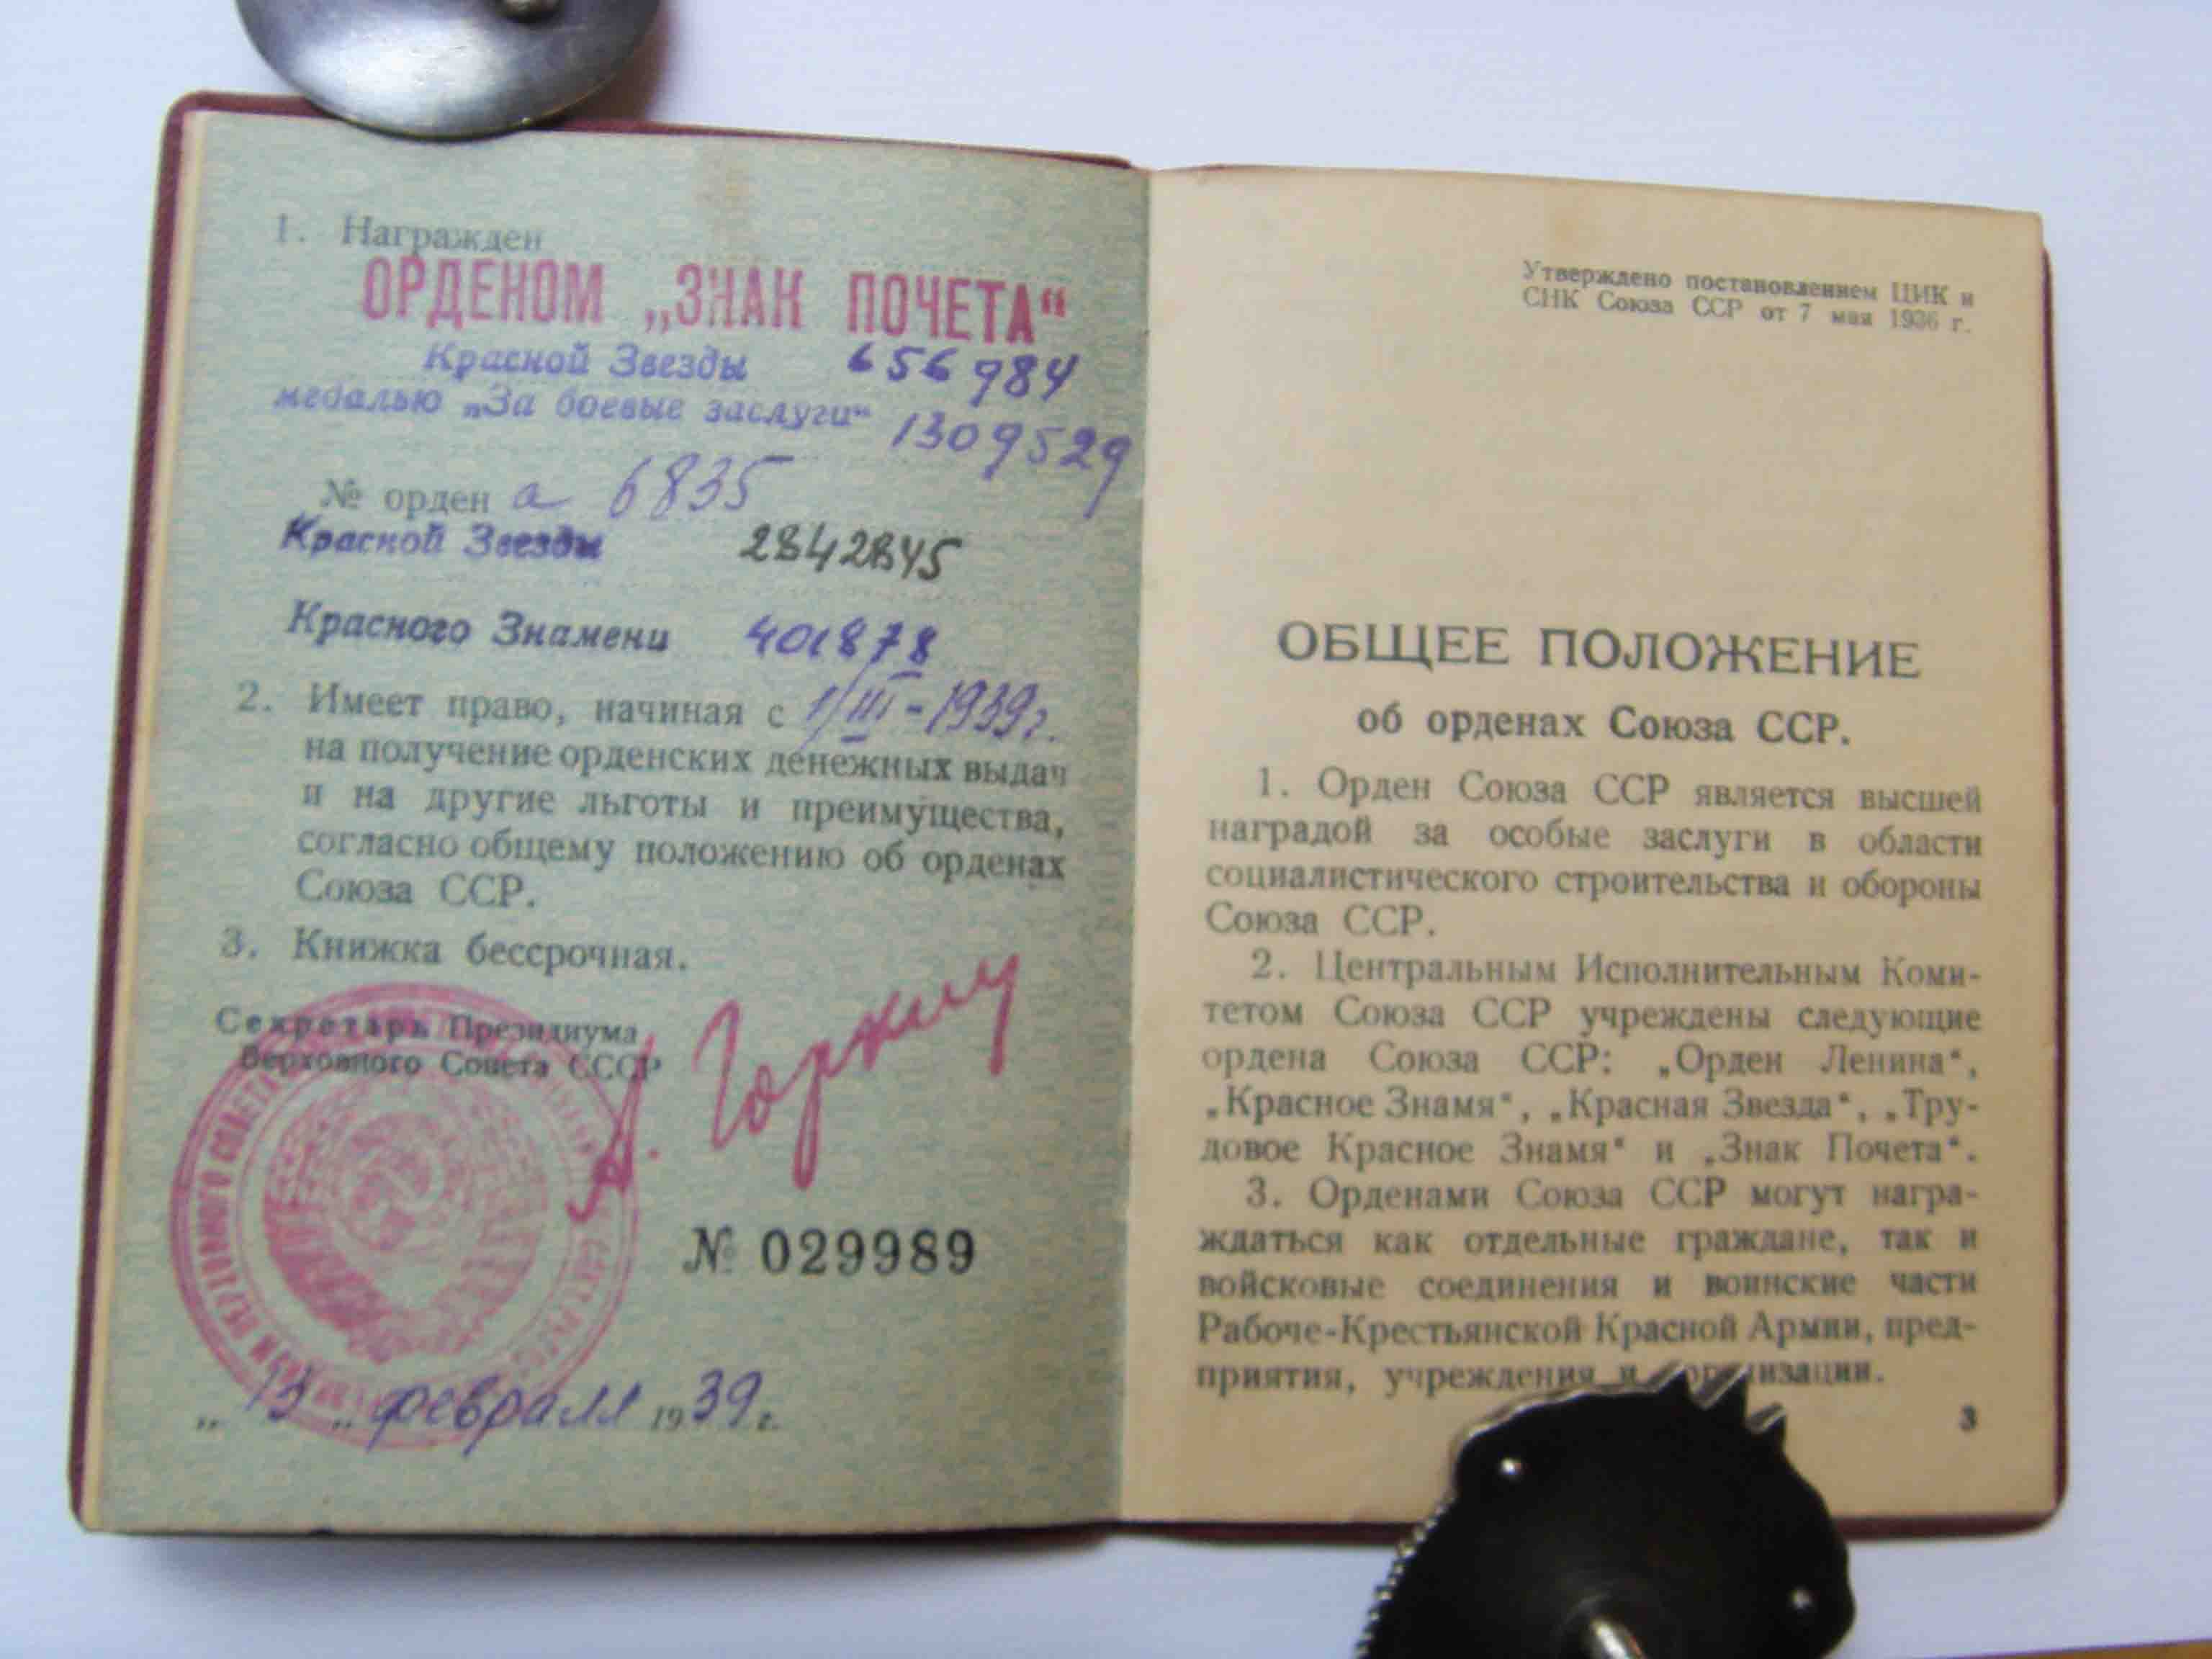 1. Награжден
ОРДЕНОМ „ЗНАК ПОЧЕТА“
Красной Звезды 656984
медалью „За боевые заслуги“ 1309529
№ орден а 6835
Красной Звезды
Красного Знамени 401878
2. Имеет право, начиная с 1/III-1939г.
на получение орденских денежных выдач
и на другие льготы и преимущества,
согласно общему положению об орденах
Союза ССР.
3. Книжка бессрочная.
Секретарь Президиума
Верховного Совета СССР
А. Горкин
№ 029989
„13„ февраля 1939 г.
Утверждено постановлением ЦИК и
СНК Союза ССР от 7 мая 1936 г.
ОБЩЕЕ ПОЛОЖЕНИЕ
об орденах Союза ССР.
1. Орден Союза ССР является высшей
наградой за особые заслуги в области
социалистического строительства и обороны
Союза ССР.
2. Центральным Исполнительным Коми-
тетом Союза ССР учреждены следующие
ордена Союза ССР: „Орден Ленина“,
„Красное Знамя“, „Красная Звезда“, „Тру-
довое Красное Знамя“ и „Знак Почета“.
3. Орденами Союза ССР могут награ-
ждаться как отдельные граждане, так и
войсковые соединения и воинские части
Рабоче-Крестьянской Красной Армии, пред-
приятия, учреждения и организации.
3